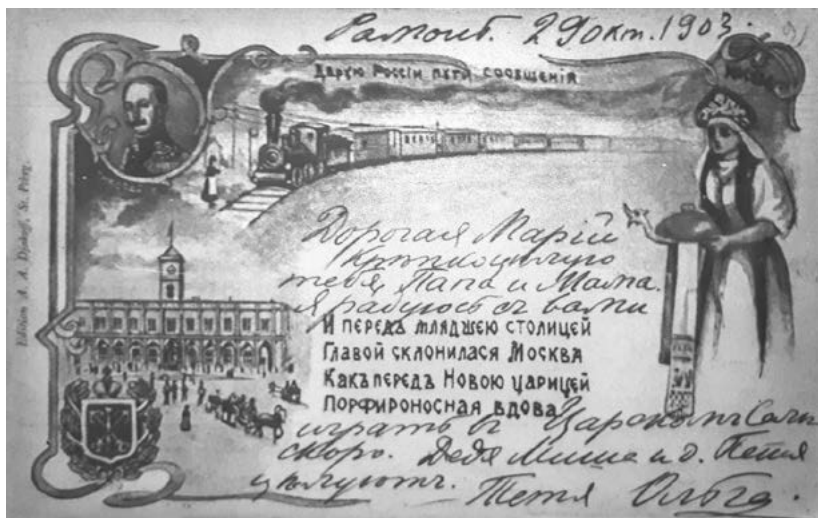 Рамонь. 29 окт. 1903.
Дарую Россіи пути сообщенія
Дорогая Марія
Крѣпко цѣлую
тебя, Папа и Мама.
Я радуюсь съ вами
И передъ младшею столицей
Главой склонилася Москва
Какъ передъ Новою царицей
Порфироносная вдова
играть въ Царскомъ Селѣ
скоро. Дядя Миша и д. Петя
цѣлуютъ. Тетя Ольга.
Edition A. A. Djakoff, St. Pbrg.